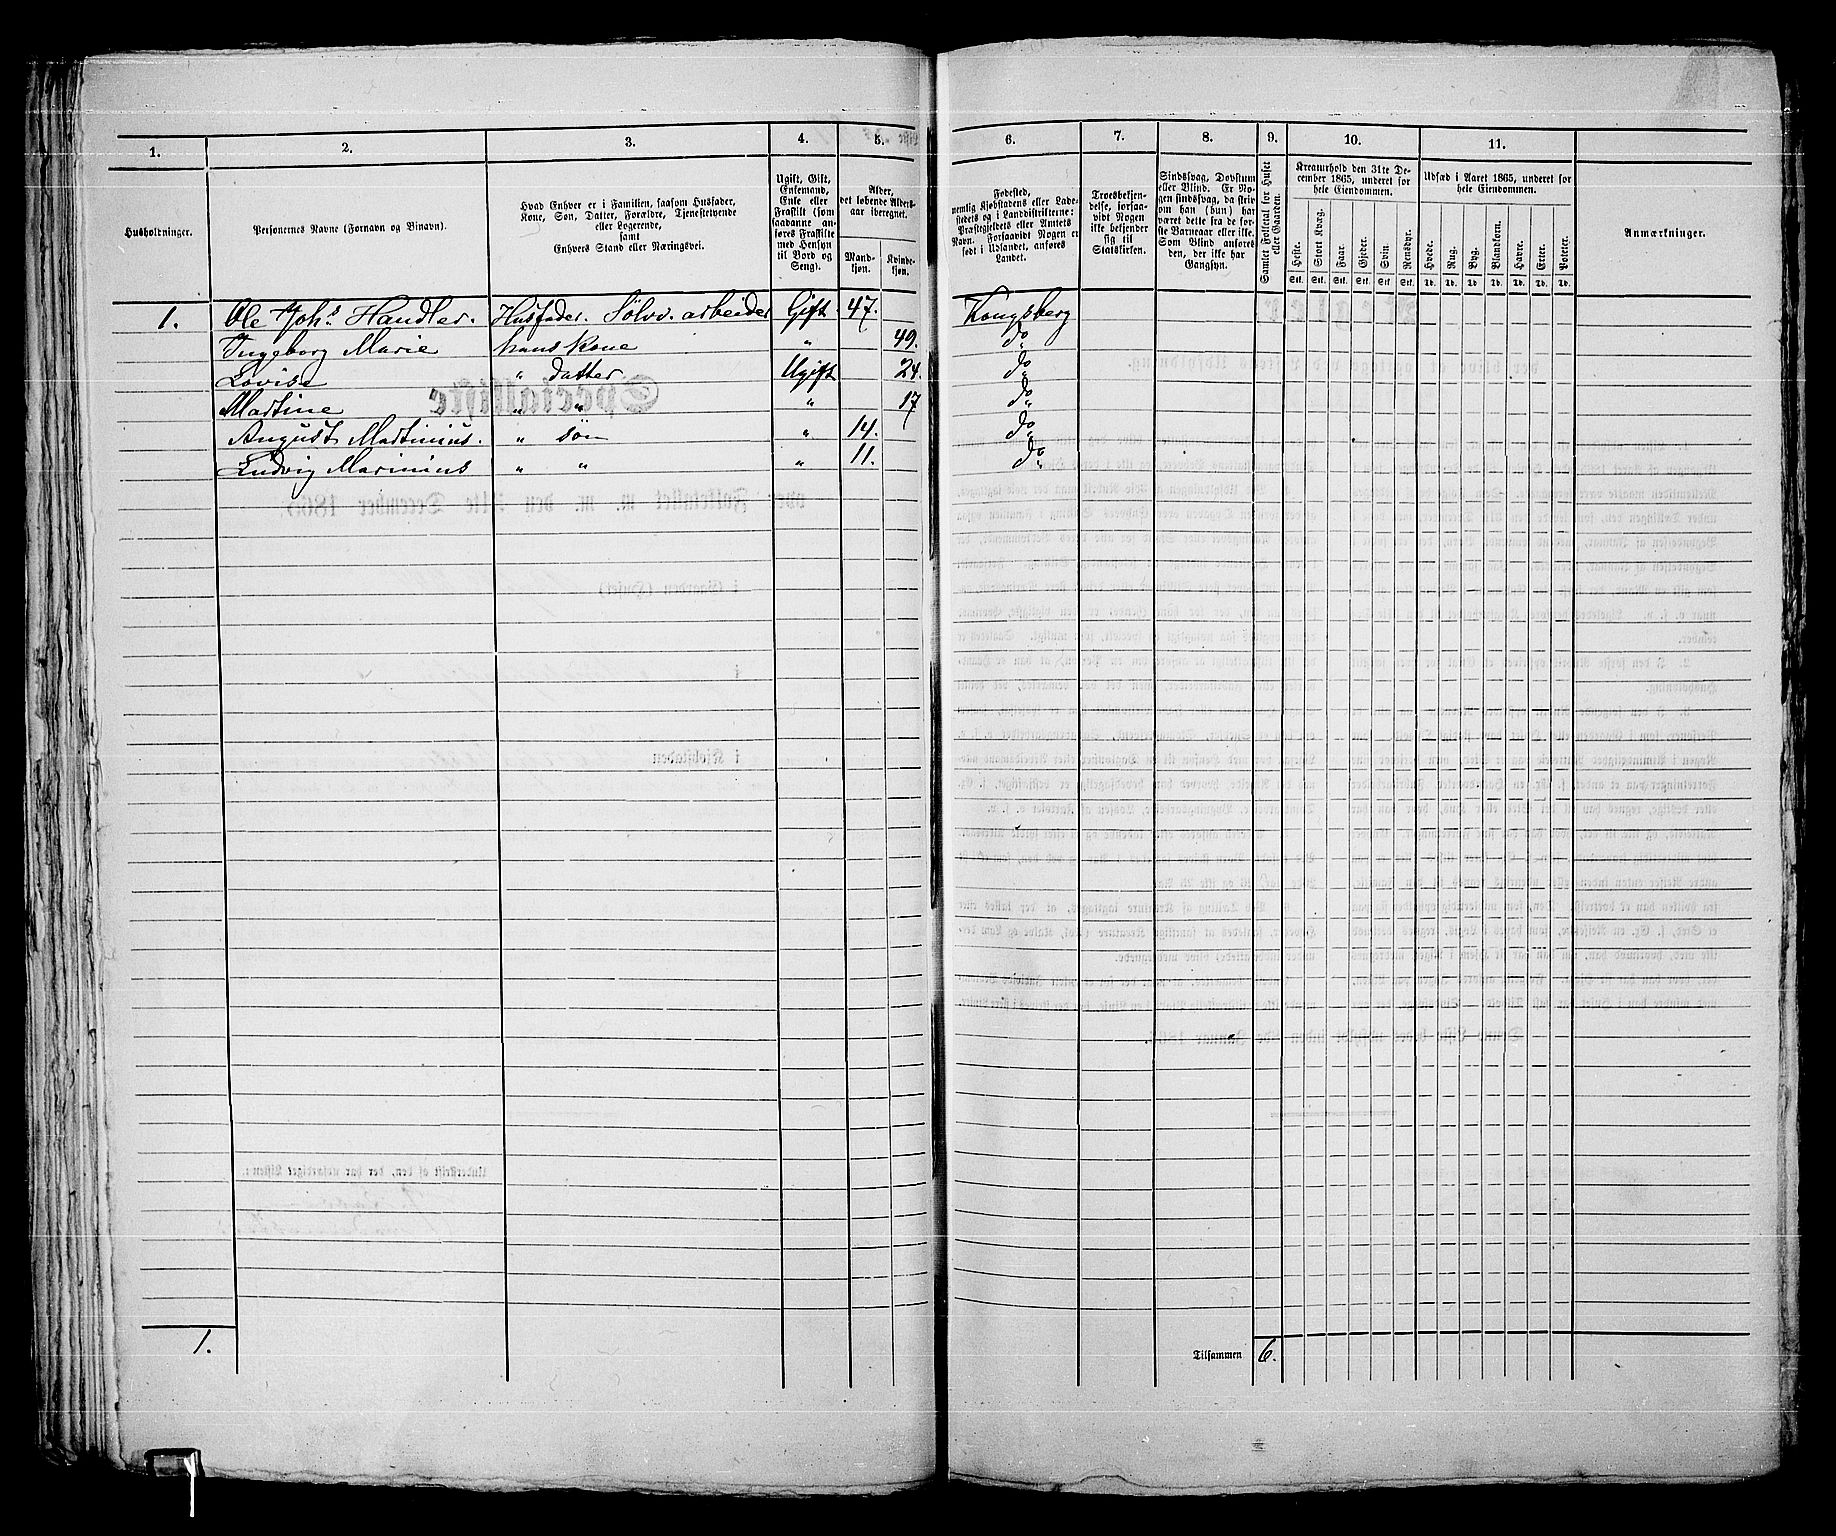 1.
2.
3.
4.
5.
6.
7.
8.
9.
10.
11.
Husholdninger.
Personernes Navne (Fornavn og Binavn).
Hvad Enhver er i Familien, saasom Husfader,
Kone, Søn, Datter, Forældre, Tjenestetyende
eller Logerende,
samt
Enhvers Stand eller Næringsvei.
Ugift, Gift,
Enkemand,
Enke eller
Fraskilt (som
saadanne an-
føres Fraskilte
med Hensyn
til Bord og
Seng).
Alder,
det løbende Alders-
aar iberegnet.
Mand-
kjøn.
Kvinde-
kjøn.
Fødested,
nemlig Kjøbstadens eller Lade-
stedets og i Landdistrikterne:
Præstegjeldets eller Amtets
Navn. Forsaavidt Nogen er
født i Udlandet, anføres
Landet.
Troesbekjen-
delse, forsaa-
vidt Nogen
ikke bekjender
sig til
Statskirken.
Sindssvag, Døvstum
eller Blind. Er No-
gen sindssvag, da skriv
om han (hun) har
været dette fra de for-
ste Barneaar eller ikke.
Som Blind anføres
den, der ikke har
Gangsyn.
Samlet Folketal for Huset
eller Gaarden.
Kreaturhold den 31te De-
cember 1865, underet for
hele Eiendommen.
Heste.
Stort Kvæg.
Faar.
Gjeder.
Svin.
Rensdyr.
Stk. Stk. Stk. Stk. Stk. Stk.
Udsæd i Aaret 1865, underet for
hele Eiendommen.
Hvede.
Rug.
Byg.
Blandkorn.
Havre.
Erter.
Poteter.
Td. Td. Td. Td. Td. Td. Td.
Anmærkninger.
1. Ole Johs Handler. Husfader. Sølvv. arbeider Gift 47. Kongsberg
Ingeborg Marie hans Kone " 49. do
Lovise " datter Ugift 24. do
Martine " " " 17 do
August Martinius. " søn " 14. do
Ludvig Marinius " " " 11. do
1.
Tilsammen 6.